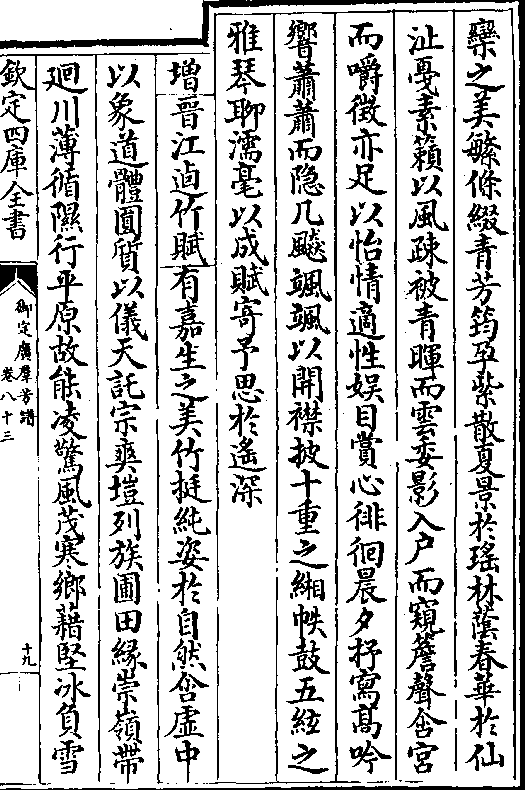 欒之美繁條綴青芳筠孕紫散夏景於瑤林蔭春華於仙
沚戞素籟以風疎被青暉而雲委影入户而窺簷聲含宫
而嚼徴亦足以怡情適性娱目賞心徘徊晨夕抒寫高吟
響蕭蕭而隐几飈颯颯以開襟披十重之緗帙鼓五絃之
雅琴聊濡毫以成賦寄予思於遙深
増晉江逌竹賦有嘉生之美竹挺純姿於自然含虚中
以象道體圓質以儀天託宗爽塏列族圃田緣崇嶺帶
廻川薄循隰行平原故能凌驚風茂寒鄉藉堅冰負雪
欽定四庫全書
御定廣羣芳譜
卷八十三
十九